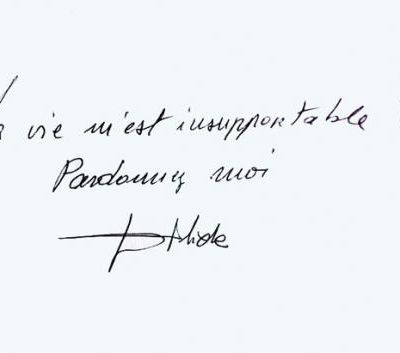 La vie m'est insupportable
Pardonnez moi
Dalida